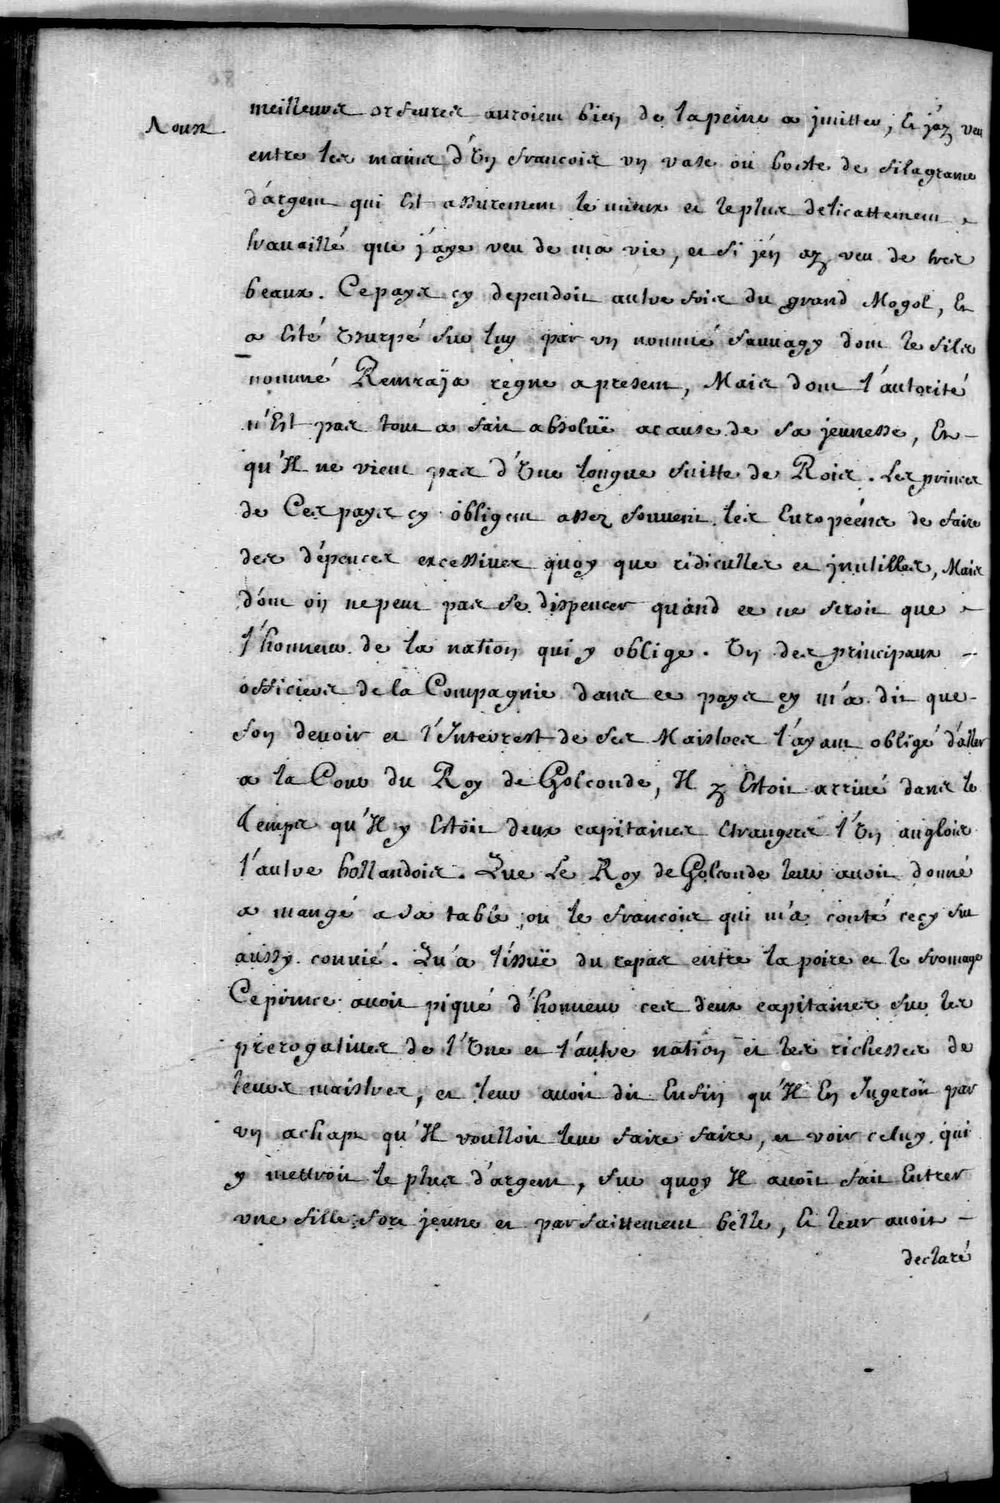 Aoust.
meilleurs orfeures auroient bien de la peine a jmitter, Et j'aÿ veu
entre les mains d'Un francois vn vase ou boiste de filagrame
d'argent qui Est assurement le mieux et le plus delicattement
trauaillé que j'aye veu de ma vie, et si j'en aÿ veu de tres
beaux. Ce pays cy dependoit autre fois du grand Mogol, Et
a Esté Vsurpé sur luy par vn nommé Sauuagy dont le fils
nommé Remraja regne apresent, Mais dont l'autorité
n'Est pas tout a fait absoluë acause de sa jeunesse, Et
qu'Il ne vient pas d'Une longue suitte de Rois. Les princes
de Ces pays cy obligent assez souvent les Européens de faire
des dépences excessiues quoy que ridiculles et jnutilles, Mais
dont on ne peut pas se dispencer quand ce ne seroit que
l'honneur de la nation qui y oblige. Un des principaux
officiers de la Compagnie dans ce pays cy m'a dit que
son devoir et l'Interest de ses Maistres l'ayant obligé d'aller
a la Cour du Roy de Golconde, Il ÿ Estoit arriué dans le
temps qu'Il y Estoit deux capitaines Etrangers l'Un anglois
l'autre hollandois. Que Le Roy de Golconde leur avoit donné
a mangé a sa table, ou le francois qui m'a conté cecy fut
aussy conuié. Qu'a l'issuë du repas entre la poire et le fromage
Ce prince avoit piqué d'honneur ces deux capitaines sur les
prerogatiues de l'Une et l'autre nation et les richesses de
leurs maistres, et leur avoit dit Enfin qu'Il En Jugeroit par
vn achapt qu'Il voulloit leur faire faire, et voir celuy qui
y mettroit le plus d'argent, sur quoy Il avoit fait Entrer
vne fille fort jeune et parfaittement belle, Et leur avoit
declaré